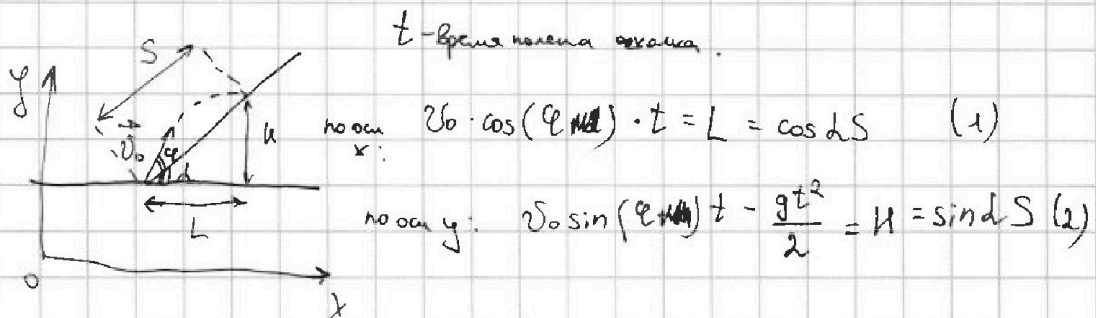 t - время полета осколка.
S
y
v₀ φ α H
L
0
x
по оси x: v₀ · cos(φ) · t = L = cos α S (1)
по оси y: v₀ sin(φ) t - gt²/2 = H = sin α S (2)